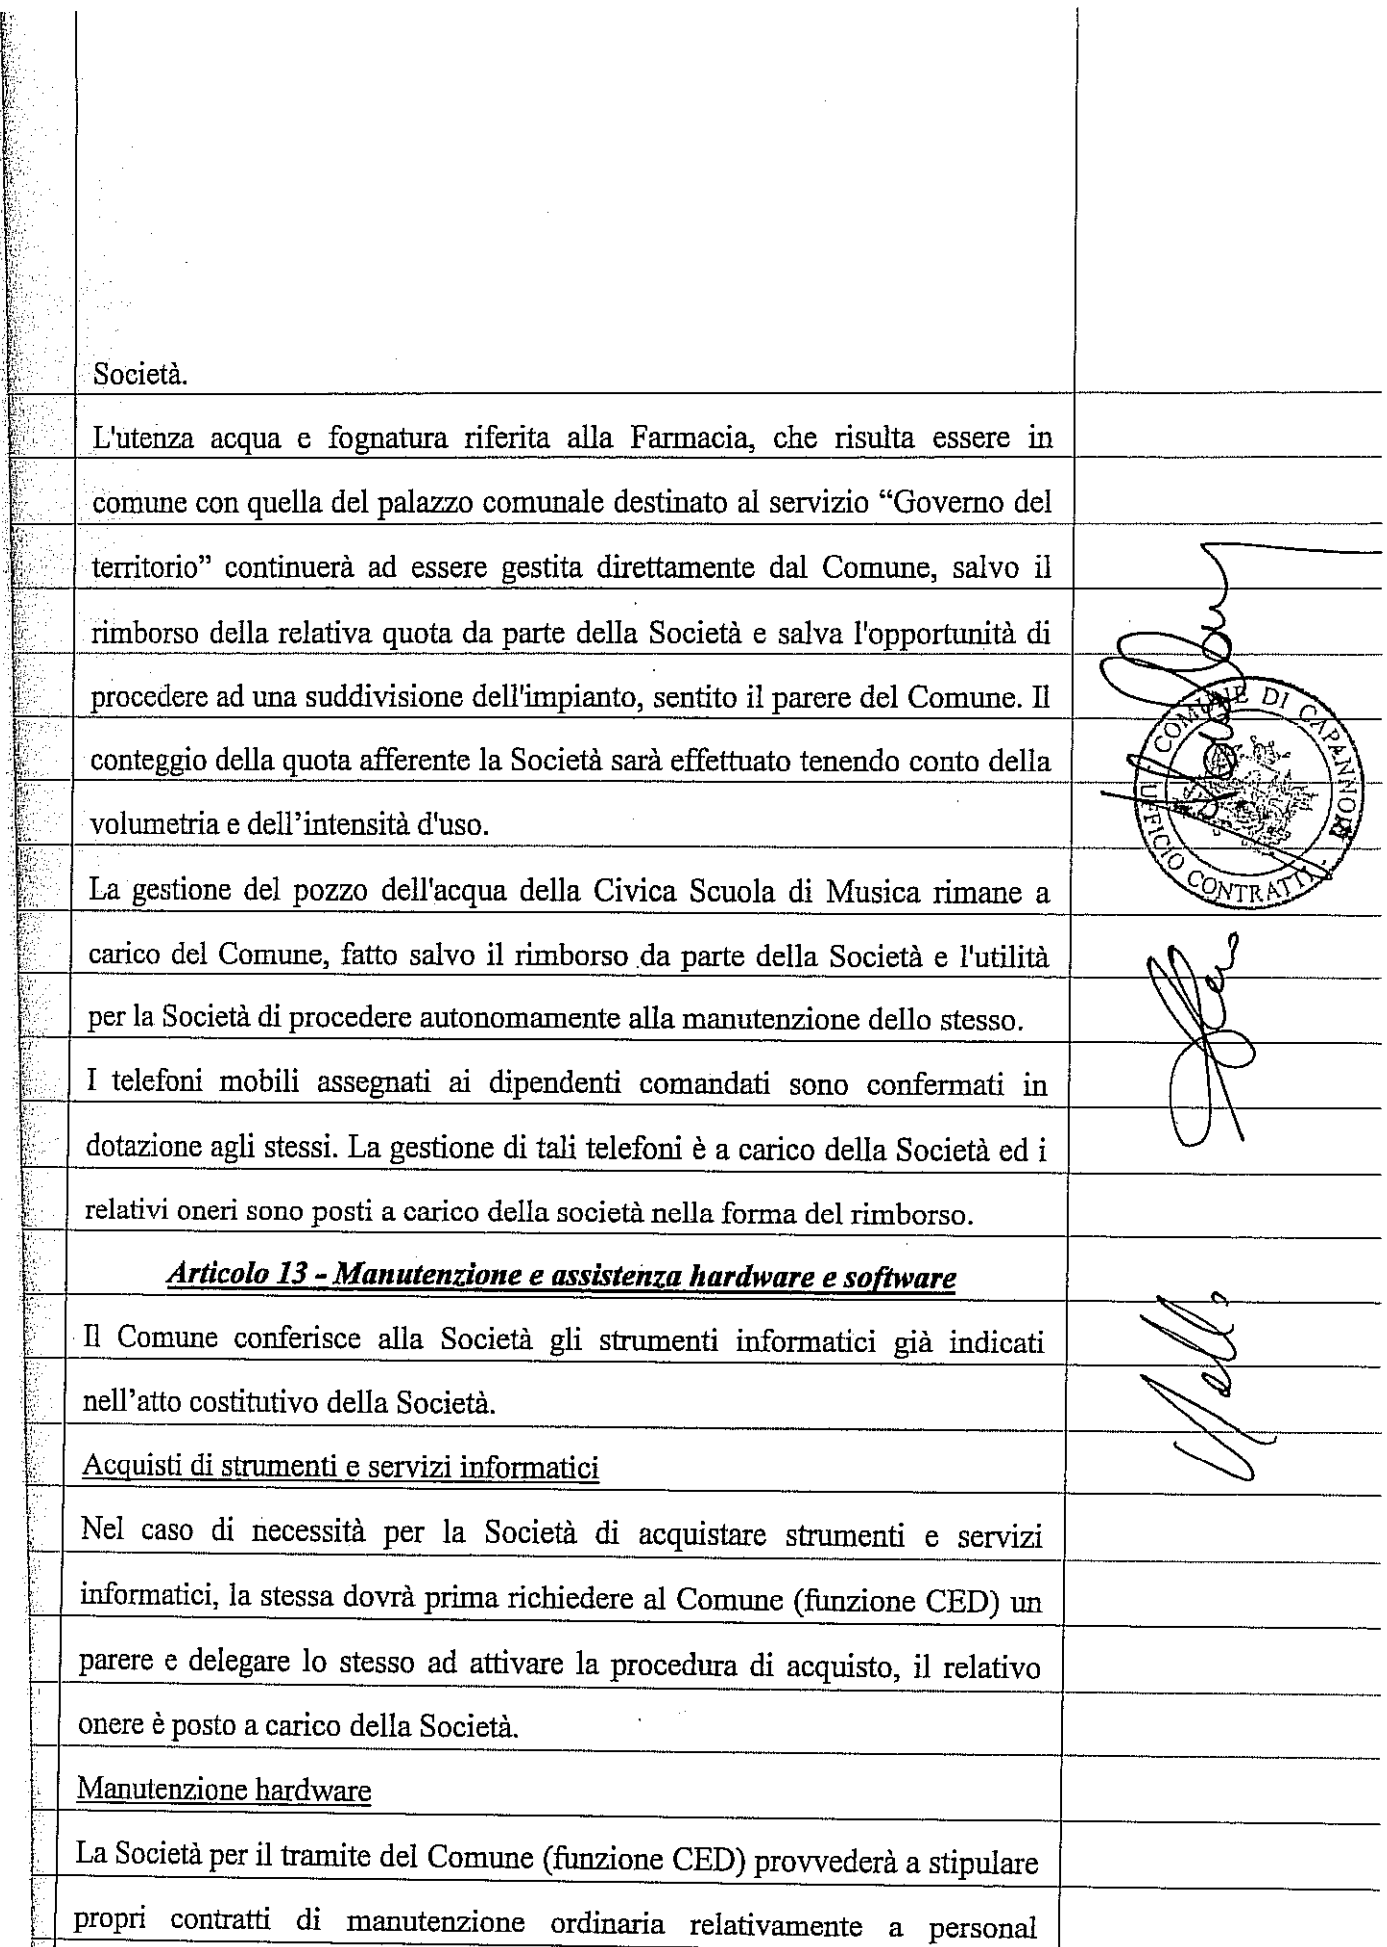 Società.
L'utenza acqua e fognatura riferita alla Farmacia, che risulta essere in
comune con quella del palazzo comunale destinato al servizio “Governo del
territorio” continuerà ad essere gestita direttamente dal Comune, salvo il
rimborso della relativa quota da parte della Società e salva l'opportunità di
procedere ad una suddivisione dell'impianto, sentito il parere del Comune. Il
conteggio della quota afferente la Società sarà effettuato tenendo conto della
volumetria e dell’intensità d'uso.
La gestione del pozzo dell'acqua della Civica Scuola di Musica rimane a
carico del Comune, fatto salvo il rimborso da parte della Società e l'utilità
per la Società di procedere autonomamente alla manutenzione dello stesso.
I telefoni mobili assegnati ai dipendenti comandati sono confermati in
dotazione agli stessi. La gestione di tali telefoni è a carico della Società ed i
relativi oneri sono posti a carico della società nella forma del rimborso.
Articolo 13 - Manutenzione e assistenza hardware e software
Il Comune conferisce alla Società gli strumenti informatici già indicati
nell’atto costitutivo della Società.
Acquisti di strumenti e servizi informatici
Nel caso di necessità per la Società di acquistare strumenti e servizi
informatici, la stessa dovrà prima richiedere al Comune (funzione CED) un
parere e delegare lo stesso ad attivare la procedura di acquisto, il relativo
onere è posto a carico della Società.
Manutenzione hardware
La Società per il tramite del Comune (funzione CED) provvederà a stipulare
propri contratti di manutenzione ordinaria relativamente a personal
COMUNE DI CAPANNORI
UFFICIO CONTRATTI